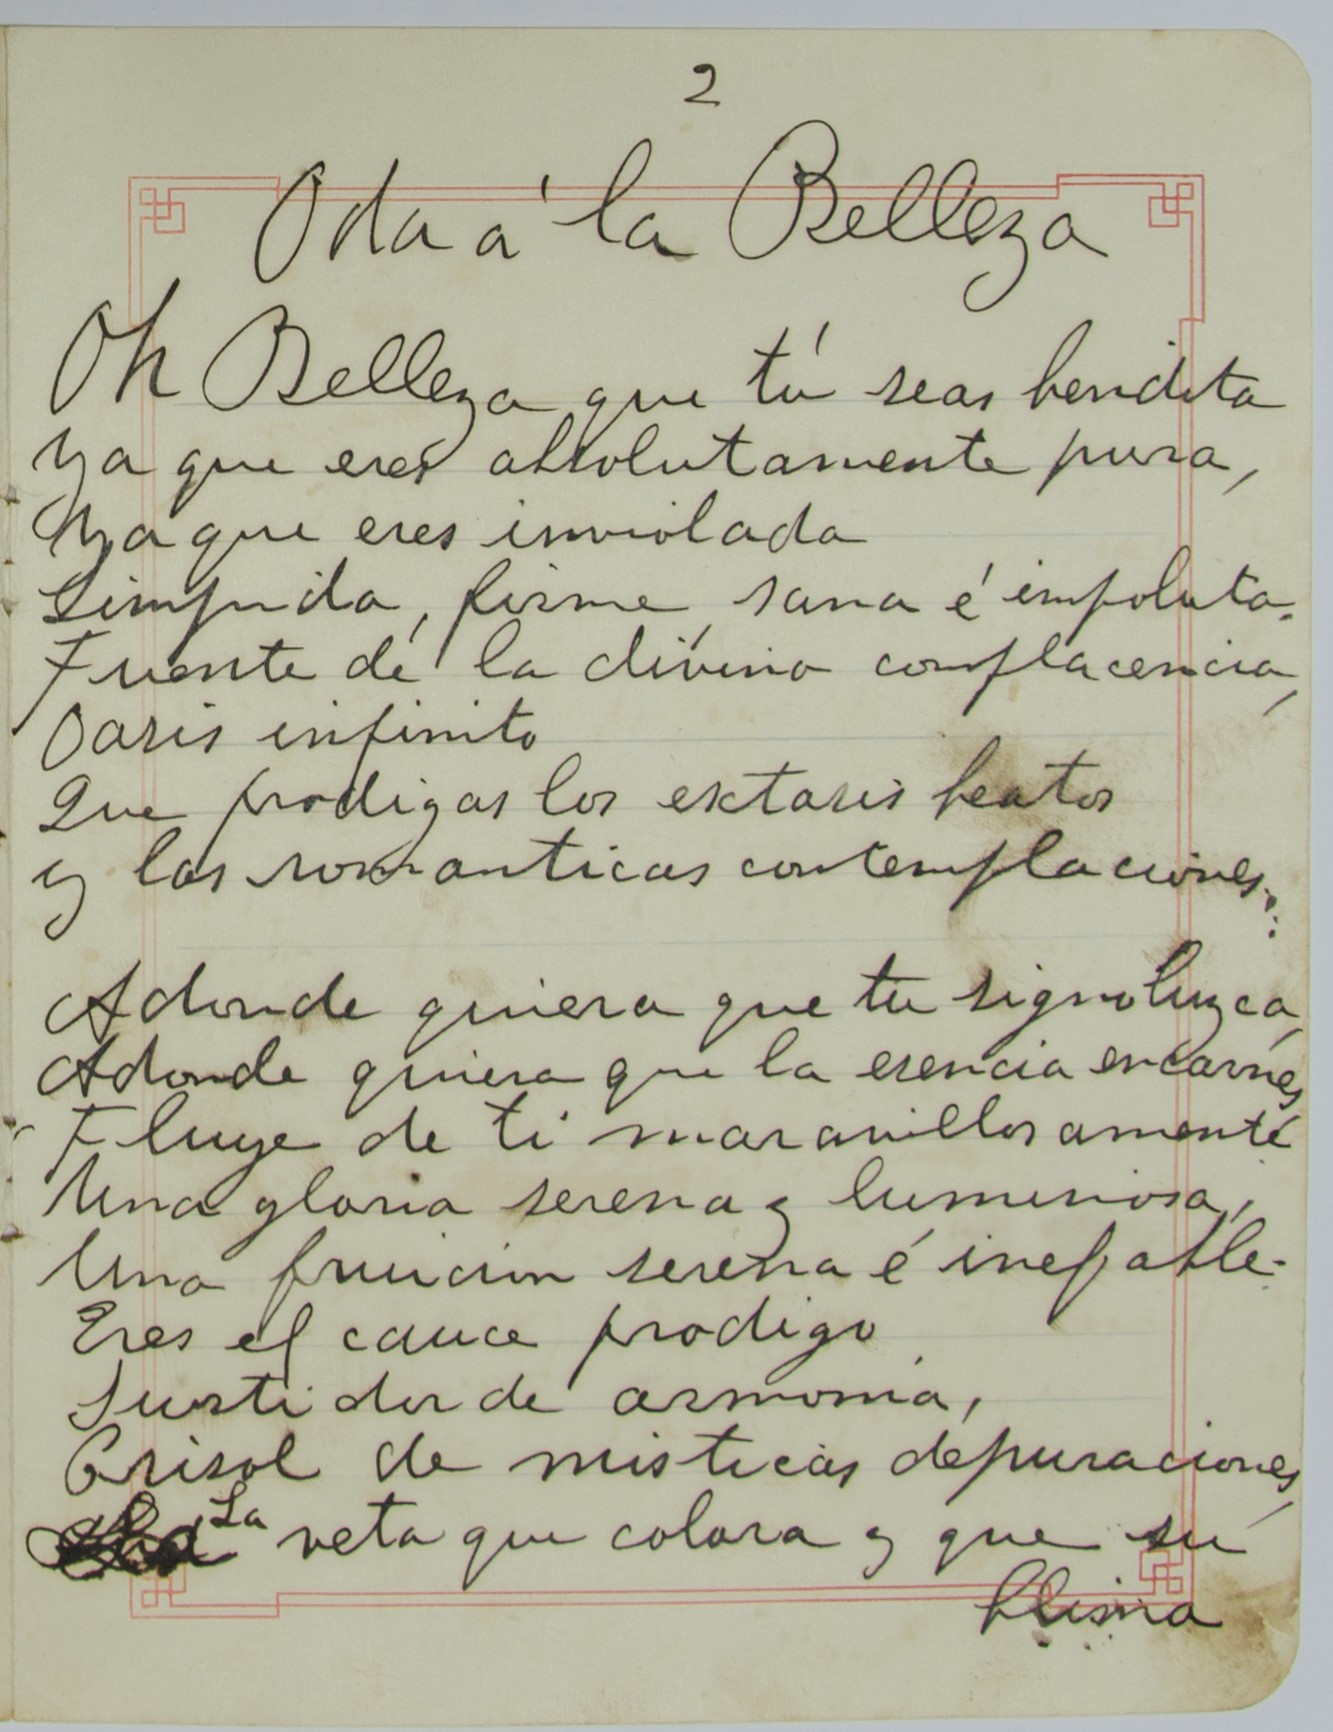 2
Oda á la Belleza
Oh Belleza que tú seas bendita
Ya que eres absolutamente pura,
Ya que eres inviolada
Limpida, firme, sana é impoluta.
Fuente de la divina complacencia,
Oasis infinito
Que prodigas los extasis beatos
y las romanticas contemplaciones.
Adonde quiera que tu signo luzca,
Adonde quiera que la esencia encarnes
Fluye de ti maravillosamente
Una gloria serena y luminosa,
Una fruicion serena é inefable.
Eres el cauce prodigo
Surtidor de armonia,
Crisol de misticas depuraciones,
La veta que colora y que su
blima